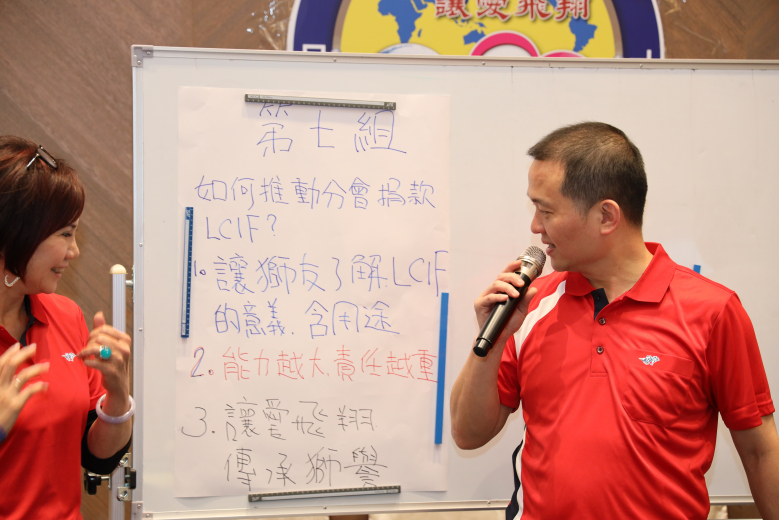 讓愛飛翔
第七組
如何推動分會捐款
LCIF?
1. 讓獅友了解LCIF
的意義.含用途
2. 能力越大.責任越重
3. 讓愛飛翔
傳承獅譽